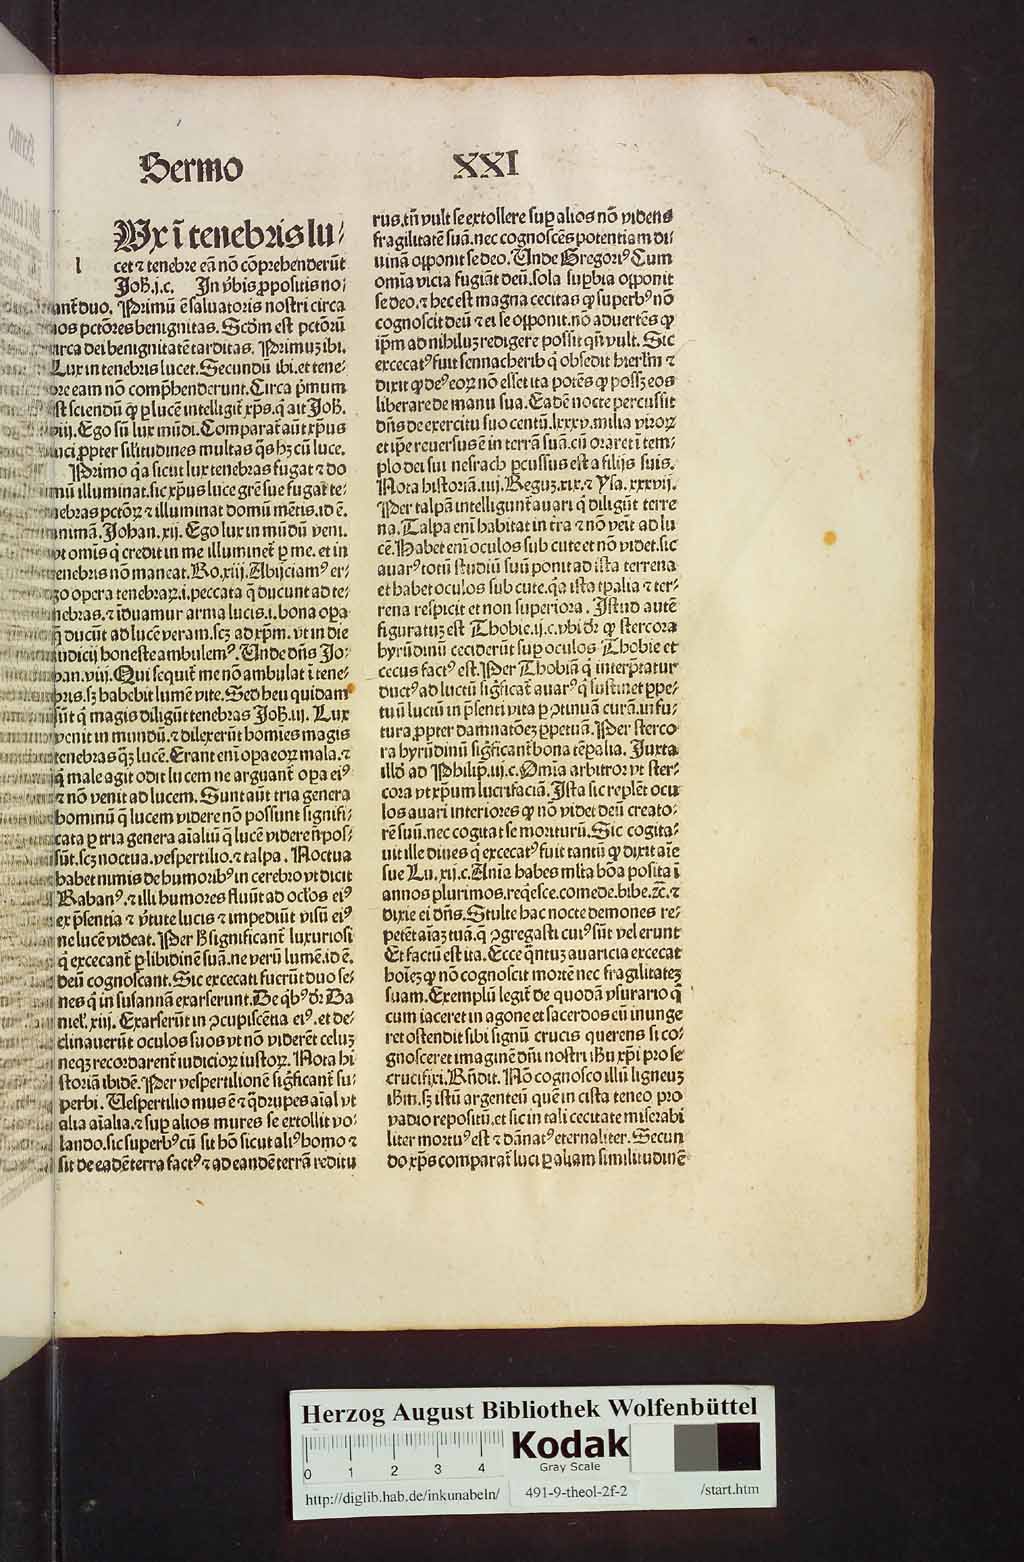 Sermo XXI
Vx ī tenebris lu⸗
l cet ⁊ tenebre eā nō cōprehenderūt
Joh̄.j.c. In v̄bis ꝓpositis no⸗
ant᷑ duo. Primū ē saluatoris nostri circa
nos pctōres benignitas. Scd̄m est pctōrū
circa dei benignitatē tarditas. Primuꝫ ibi.
Lux in tenebris lucet. Secundū ibi. et tene⸗
bre eam non comp̄henderunt. Circa p̄mum
est sciendū ꝙ ꝑ lucē intelligit᷑ xp̄s. q̇ ait Joh̄.
viij. Ego sū lux mūdi. Comparat᷑ aūt xp̄us
luci ꝓpter silitudines multas q̄s hꝫ cū luce.
Primo q̇a sicut lux tenebras fugat ⁊ do
mū illuminat. sic xp̄us luce gr̄e sue fugat te⸗
nebras pctōꝝ ⁊ illuminat domū mētis. id ē.
animā. Johan. xij. Ego lux in mūdū veni.
vt omīs q̇ credit in me illuminet᷑ ꝑ me. et in
tenebris nō maneat. Ro. xiij. Abijciamꝰ er⸗
go opera tenebraꝝ. i. peccata q̄ ducunt ad te⸗
nebras. ⁊ īduamur arma lucis. i. bona oꝑa
q̄ ducūt ad lucē veram. scꝫ ad xp̄m. vt in die
iudicij honeste ambulemꝰ. Unde dn̄s Jo⸗
han. viij. Qui sequit᷑ me nō ambulat ī tene⸗
bris. sꝫ habebit lumē vite. Sed heu quidam
sūt q̇ magis diligūt tenebras Joh̄. iij. Lux
venit in mundū. ⁊ dilexerūt homīes magis
tenebras q̄ꝫ lucē. Erant eni oꝑa eoꝝ mala. ⁊
q̇ male agit odit lucem ne arguant᷑ oꝑa eiꝰ
⁊ nō venit ad lucem. Sunt aūt tria genera
hominū q̄ lucem videre nō possunt signifi⸗
cata ꝑ tria genera aīaliū q̄ lucē videre n̄ pos⸗
sūt. scꝫ noctua. vespertilio. ⁊ talpa. Noctua
habet nimis de humoribꝰ in cerebro vt dicit
Rabanꝰ. ⁊ illi humores fluūt ad oc̄los eiꝰ
ex p̄sentia ⁊ v̄tute lucis ⁊ impediūt visū eiꝰ
ne lucē videat. Per h̄ significant᷑ luxuriosi
q̇ excecant᷑ ꝑ libidinē suā. ne verū lumē. id ē.
deū cognoscant. Sic excecati fuerūt duo se⸗
nes q̇ in susannā exarserunt. De q̇bꝰ dr̄ Da
niel̓. xiij. Exarserūt in ꝯcupiscētia eiꝰ. et de⸗
clinauerūt oculos suos vt nō viderēt celuꝫ
neqꝫ recordarent᷑ iudicioꝝ iustoꝝ. Nota hi
storiā ibidē. Per vespertilionē sig̓ficant᷑ su⸗
perbi. Uespertilio mus ē ⁊ q̄drupes aīal vt
alia aīalia. ⁊ suꝑ alios mures se extollit vo⸗
lando. sic superbꝰ cū sit hō sicut aliꝰ homo ⁊
sit de eadē terra factꝰ ⁊ ad eandē terrā reditu
rus. tn̄ vult se extollere suꝑ alios nō videns
fragilitatē suā. nec cognoscēs potentiam di⸗
uinā opponit se deo. Unde Gregoriꝰ Cum
omīa vicia fugiāt deū. sola suꝑbia opponit
se deo. ⁊ hec est magna cecitas ꝙ superbꝰ nō
cognoscit deū ⁊ ei se opponit. nō aduertēs ꝙ
ip̄m ad nihiluꝫ redigere possit qn̄ vult. Sic
excecatꝰ fuit sennacherib q̇ obsedit hierl̄m ⁊
dixit ꝙ deꝰ eoꝝ nō esset ita potēs ꝙ possꝫ eos
liberare de manu sua. Eadē nocte percussit
dn̄s de exercitu suo centū. lxxxv. milia viroꝝ
et ip̄e reuersus ē in terrā suā. cū oraret ī tem⸗
plo dei sui nesrach ꝑcussus est a filijs suis.
Nota historiā. iiij. Reguꝫ. xix. ⁊ Ysa. xxxvij.
Per talpā intelligunt᷑ auari q̇ diligūt terre
na. Talpa eni habitat in tr̄a ⁊ nō venit ad lu
cē. Habet eni oculos sub cute et nō videt. sic
auarꝰ totū studiū suū ponit ad ista terrena
et habet oculos sub cute. q̇a ista tꝑalia ⁊ ter⸗
rena respicit et non superiora. Istud autē
figuratuꝫ est Thobie. ij. c. vbi dr̄ ꝙ stercora
hyrūdinū ceciderūt suꝑ oculos Thobie et
cecus factꝰ est. Per Thobiā q̇ interp̄tatur
ductꝰ ad luctū sig̓ficat᷑ auarꝰ q̇ sustinet ꝑpe⸗
tuū luctū in p̄senti vita ꝑ ꝯtinuā curā. in fu⸗
tura ꝓpter damnatōeꝫ ꝑpetuā. Per sterco
ra hyrūdinū sig̓ficant᷑ bona tēpalia. Juxta
illd̓ ad Philip̄. iij. c. Omīa arbitror vt ster⸗
cora vt xp̄um lucrifaciā. Ista sic replēt ocu
los auari interiores ꝙ nō videt deū creato⸗
rē suū. nec cogitat se moriturū. Sic cogita⸗
uit ille diues q̇ excecatꝰ fuit tantū ꝙ dixit aīe
sue Lu. xij. c. Anīa habes ml̄ta bōa posita ī
annos plurimos. reqesce. comede. bibe. ⁊c̄. ⁊
dixit ei dn̄s. Stulte hac nocte demones re⸗
petēt aīaꝫ tuā. q̄ ꝯgregasti cuiꝰ sūt vel erunt
Et factū est ita. Ecce q̄ntuꝫ auaricia excecat
hoīeꝫ ꝙ nō cognoscit mortē nec fragilitateꝫ
suam. Exemplū legit᷑ de quodā vsurario q̇
cum iaceret in agone et sacerdos eū inunge
ret ostendit sibi signū crucis querens si co⸗
gnosceret imaginē dn̄i nostri ih̄u xp̄i pro se
crucifixi. Rn̄dit. Nō cognosco illū ligneuꝫ
ih̄m. sꝫ istū argenteū quē in cista teneo pro
vadio repositū. et sic in tali cecitate miserabi
liter mortuꝰ est ⁊ dānatꝰ eternaliter. Secun
do xp̄s comparat᷑ luci ꝑ aliam similitudinē
Herzog August Bibliothek Wolfenbüttel
0 1 2 3 4
Kodak
Gray Scale
http://diglib.hab.de/inkunabeln/ 491-9-theol-2f-2 /start.htm